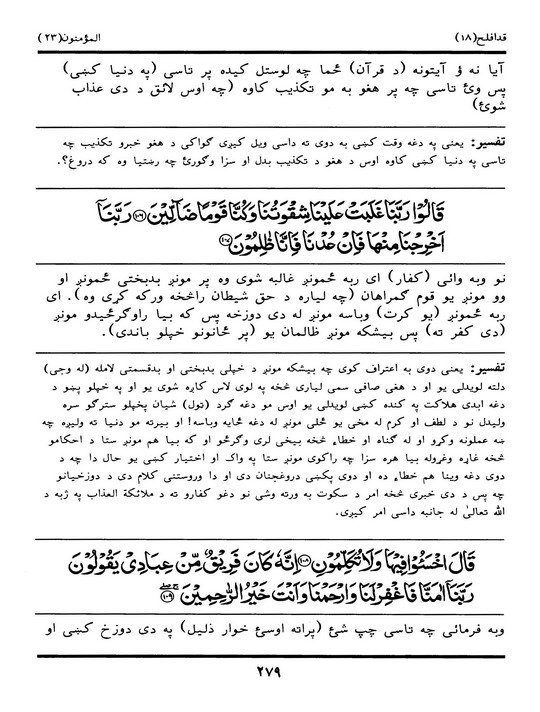 قدافلح(۱۸) المؤمنون(۲۳)
آیا نه ؤ آیتونه (د قرآن) ځما چه لوستل کیده پر تاسی (په دنیا کښی)
پس وئ تاسی چه پر هغو به مو تکذیب کاوه (چه اوس لائق د دی عذاب
شوئ)
تفسیر: یعنی په دغه وقت کښی به دوی ته داسی ویل کیږی گواکی د هغو خبرو تکذیب چه
تاسی په دنیا کښی کاوه اوس د هغو د تکذیب بدل او سزا وگورئ چه رښتیا وه که دروغ؟.
قَالُوْا رَبَّنَا غَلَبَتْ عَلَيْنَا شِقْوَتُنَا وَكُنَّا قَوْمًا ضَآلِّيْنَ ۝۱۰۶ رَبَّنَآ
اَخْرِجْنَا مِنْهَا فَاِنْ عُدْنَا فَاِنَّا ظٰلِمُوْنَ ۝۱۰۷
نو وبه وائی (کفار) ای ربه ځمونږ غالبه شوی وه پر مونږ بدبختی ځمونږ او
وو مونږ یو قوم گمراهان (چه لیاره د حق شیطان راڅخه ورکه کړی وه). ای
ربه ځمونږ (یو کرت) وباسه مونږ له دی دوزخه پس که بیا راوگرځیدو مونږ
(دی کفر ته) پس بیشکه مونږ ظالمان یو (پر ځانونو خپلو باندی).
تفسیر: یعنی دوی به اعتراف کوی چه بیشکه مونږ د خپلی بدبختی او بدقسمتی لامله (له وجی)
دلته لویدلی یو او د هغی صافی سمی لیاری څخه په لوی لاس کاږه شوی یو او په خپلو پښو د
دغه ابدی هلاکت په کنده کښی لویدلی یو اوس مو دغه گرد (ټول) شیان پخپلو سترگو سره
ولیدل نو د لطف او کرم له مخی یو ځلی مونږ له دغه ځایه وباسه! او بیرته مو دنیا ته ولیږه چه
ښه عملونه وکړو او له گناه او خطاء څخه بیخی لری وگرځو او که بیا هم مونږ ستا د احکامو
څخه غاړه وغړوله بیا هره سزا چه راکوی مونږ ستا په واک او اختیار کښی یو حال دا چه د
دوی دغه وینا هم خطاء ده او دوی پکښی دروغجنان دی او دا وروستنی کلام دی د دوزخیانو
چه پس د دی خبری څخه امر د سکوت به ورته وشی نو دغو کفارو ته د ملائکة العذاب په ژبه د
الله تعالیٰ له جانبه داسی امر کیږی.
قَالَ اخْسَـُٔوْا فِيْهَا وَلَا تُكَلِّمُوْنِ ۝۱۰۸ اِنَّهٗ كَانَ فَرِيْقٌ مِّنْ عِبَادِيْ يَقُوْلُوْنَ
رَبَّنَآ اٰمَنَّا فَاغْفِرْ لَنَا وَارْحَمْنَا وَاَنْتَ خَيْرُ الرّٰحِمِيْنَ ۝۱۰۹
وبه فرمائی چه تاسی چپ شئ (پراته اوسئ خوار ذلیل) په دی دوزخ کښی او
۲۷۹